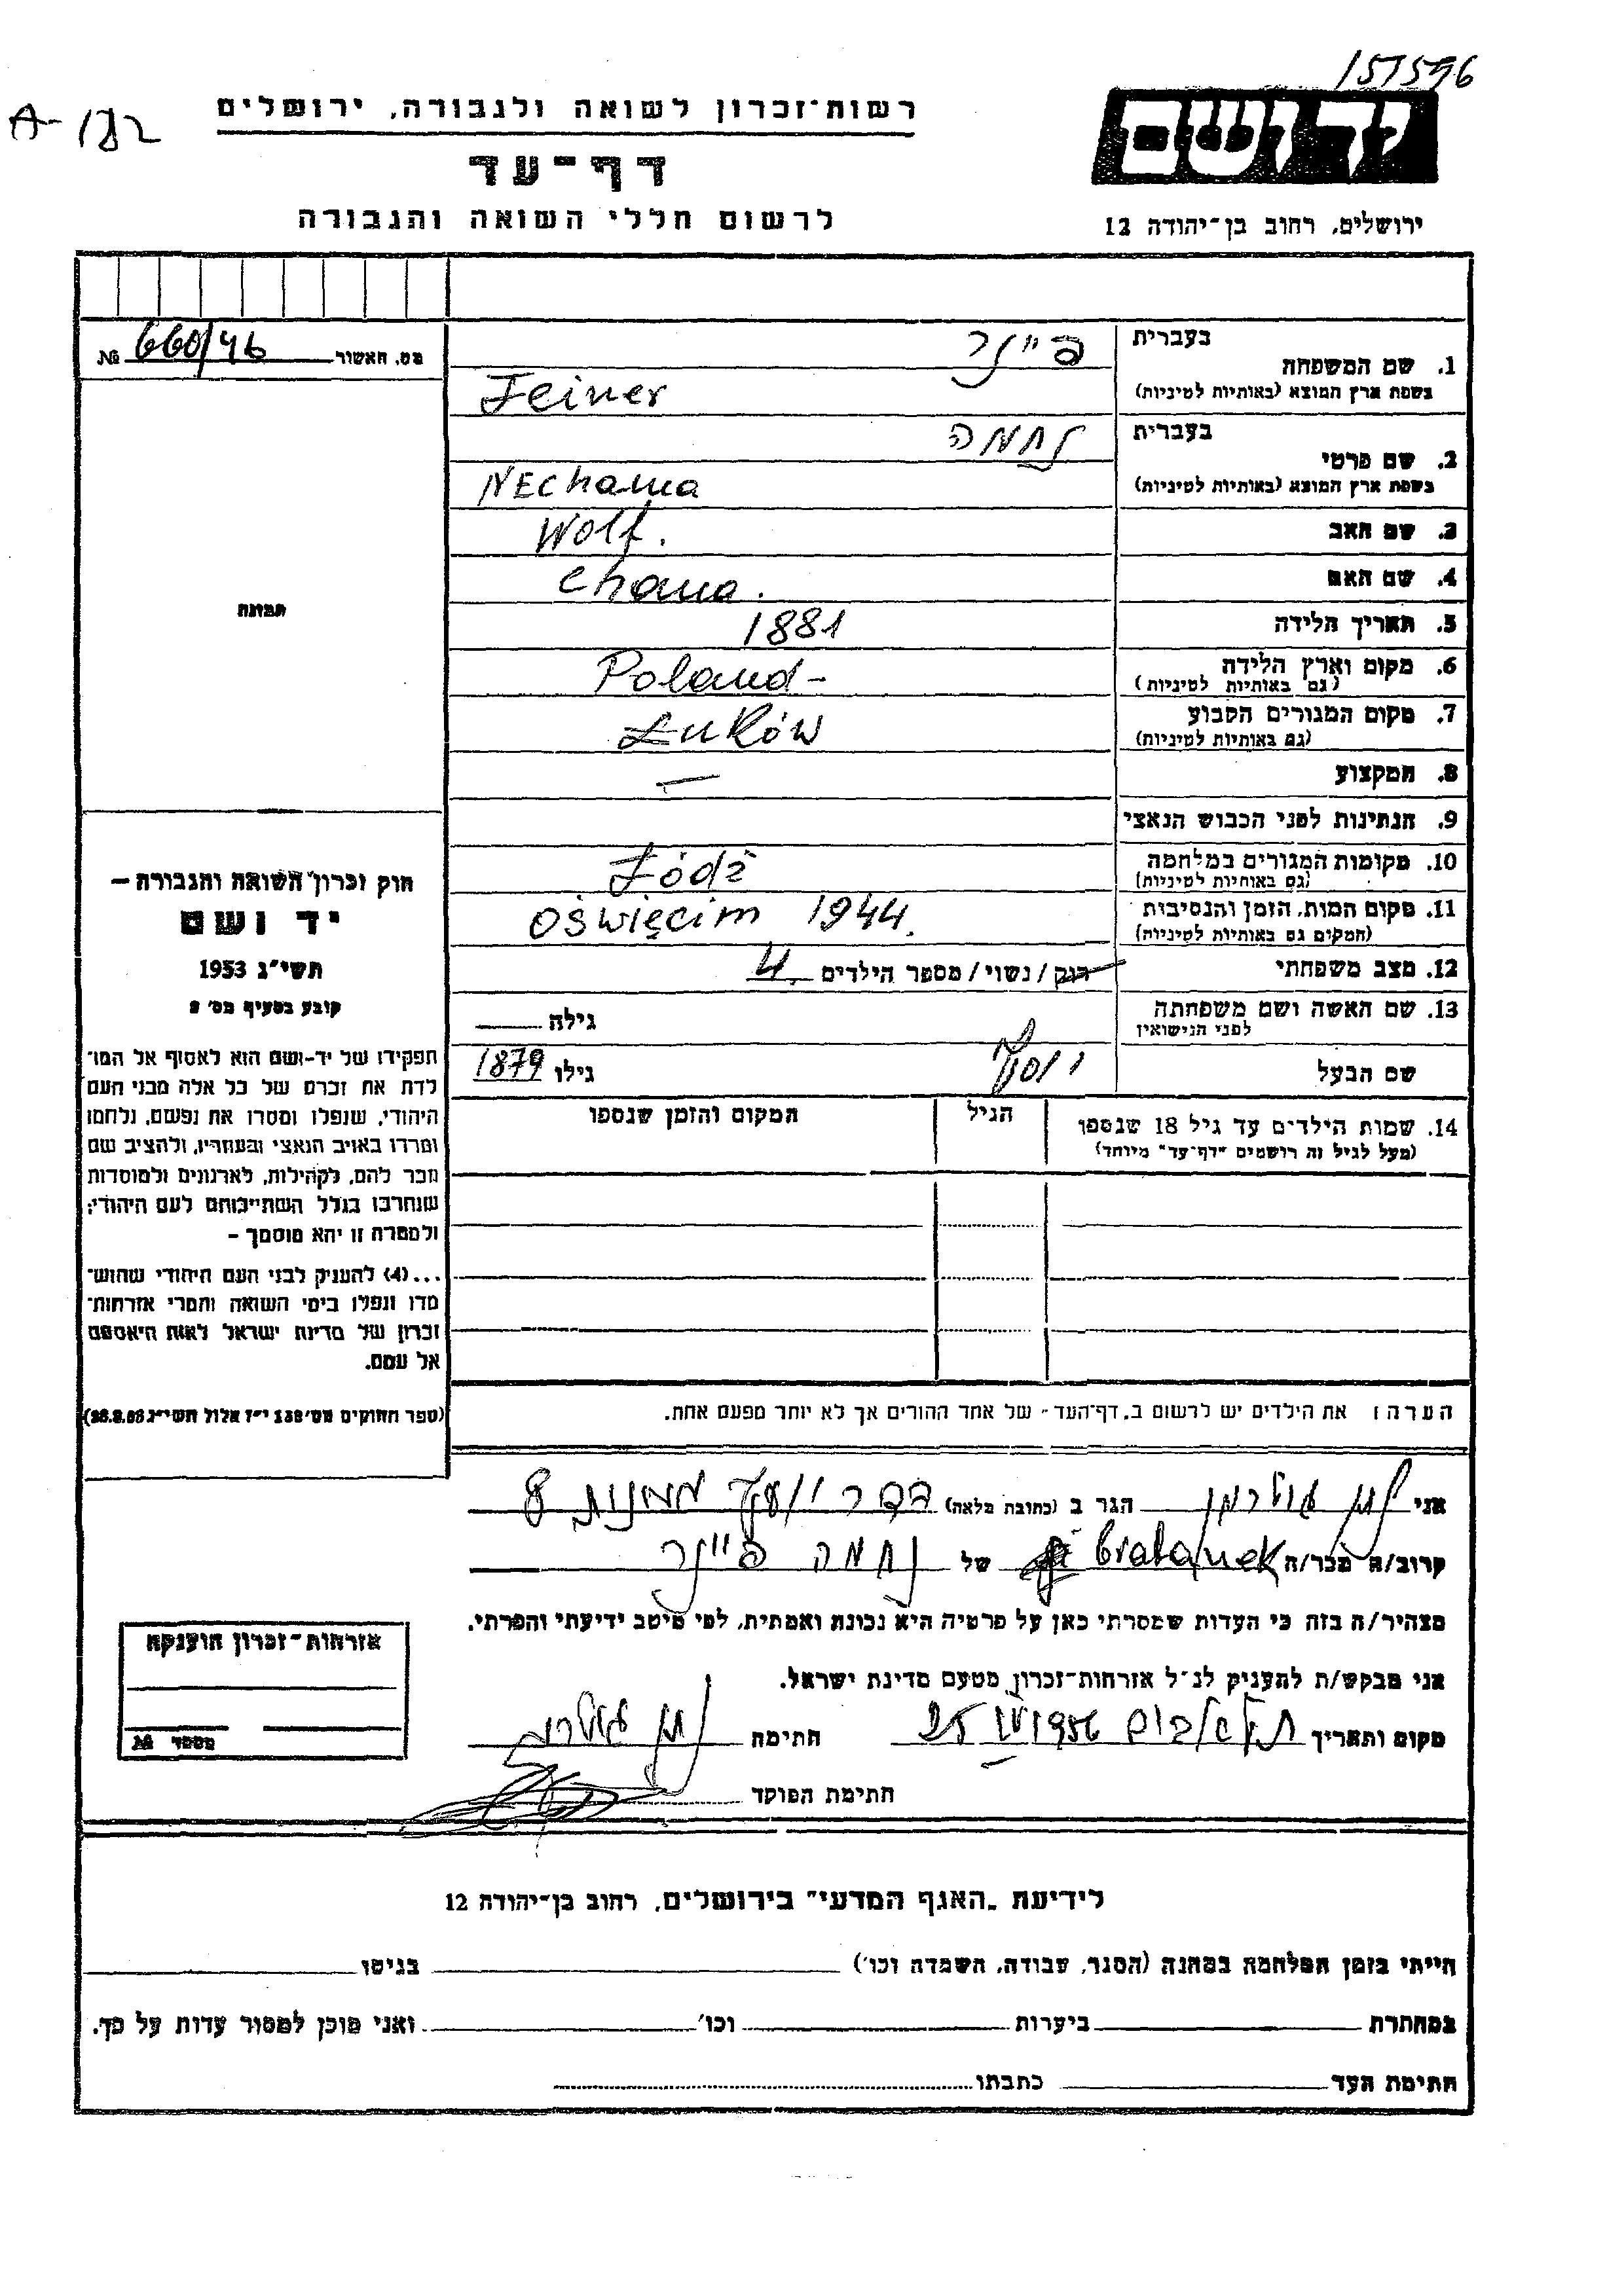 157596
A-182
רשות-זכרון לשואה ולגבורה, ירושלים
יד ושם
דף-עד
לרשום חללי השואה והגבורה
ירושלים, רחוב בן-יהודה 12
מס. האשור 660/46 №
תמונה
חוק זכרון השואה והגבורה –
יד ושם
תשי"ג 1953
קובע בסעיף מס' 2
תפקידו של יד-ושם הוא לאסוף אל המו־
לדת את זכרם של כל אלה מבני העם
היהודי, שנפלו ומסרו את נפשם, נלחמו
ומרדו באויב הנאצי ובעוזריו, ולהציב שם
וזכר להם, לקהילות, לארגונים ולמוסדות
שנחרבו בגלל השתייכותם לעם היהודי;
ולמטרה זו יהא מוסמך –
...(4) להעניק לבני העם היהודי שהוש־
מדו ונפלו בימי השואה והמרי אזרחות־
זכרון של מדינת ישראל לאות היאספם
אל עמם.
(ספר החוקים מס' 132 י"ז אלול תשי"ג 28.8.53)
בעברית פיינר
1. שם המשפחה
בשפת ארץ המוצא (באותיות לטיניות) Feiner
בעברית נחמה
2. שם פרטי
בשפת ארץ המוצא (באותיות לטיניות) NEchama
3. שם האב Wolf.
4. שם האם Chana.
5. תאריך הלידה 1881
6. מקום וארץ הלידה Poland-
(גם באותיות לטיניות)
7. מקום המגורים הקבוע Łuków
(גם באותיות לטיניות)
8. המקצוע —
9. הנתינות לפני הכבוש הנאצי
10. מקומות המגורים במלחמה Łódź
(גם באותיות לטיניות)
11. מקום המות, הזמן והנסיבות Oświęcim 1944.
(המקום גם באותיות לטיניות)
12. מצב משפחתי רווק / נשוי / מספר הילדים 4.
13. שם האשה ושם משפחתה גילה
לפני הנישואין
שם הבעל יוסף גילו 1879
14. שמות הילדים עד גיל 18 שנספו הגיל המקום והזמן שנספו
(מעל לגיל זה רושמים "דף-עד" מיוחד)
הערה: את הילדים יש לרשום ב"דף-העד" של אחד ההורים אך לא יותר מפעם אחת.
אני הגר ב (כתובת מלאה) 8
קרוב/ה מכר/ה bratanek של נחמה פיינר
מצהיר/ה בזה כי העדות שמסרתי כאן על פרטיה היא נכונה ואמתית, לפי מיטב ידיעתי והכרתי.
אני מבקש/ת להעניק לנ"ל אזרחות-זכרון מטעם מדינת ישראל.
מקום ותאריך 25 1956 חתימה
חתימת הפוקד
אזרחות-זכרון הוענקה
מספר №
לידיעת "האגף המדעי" בירושלים, רחוב בן-יהודה 12
הייתי בזמן המלחמה במחנה (הסגר, עבודה, השמדה וכו') בגיטו
במחתרת ביערות וכו' ואני מוכן למסור עדות על כך.
חתימת העד כתבתו